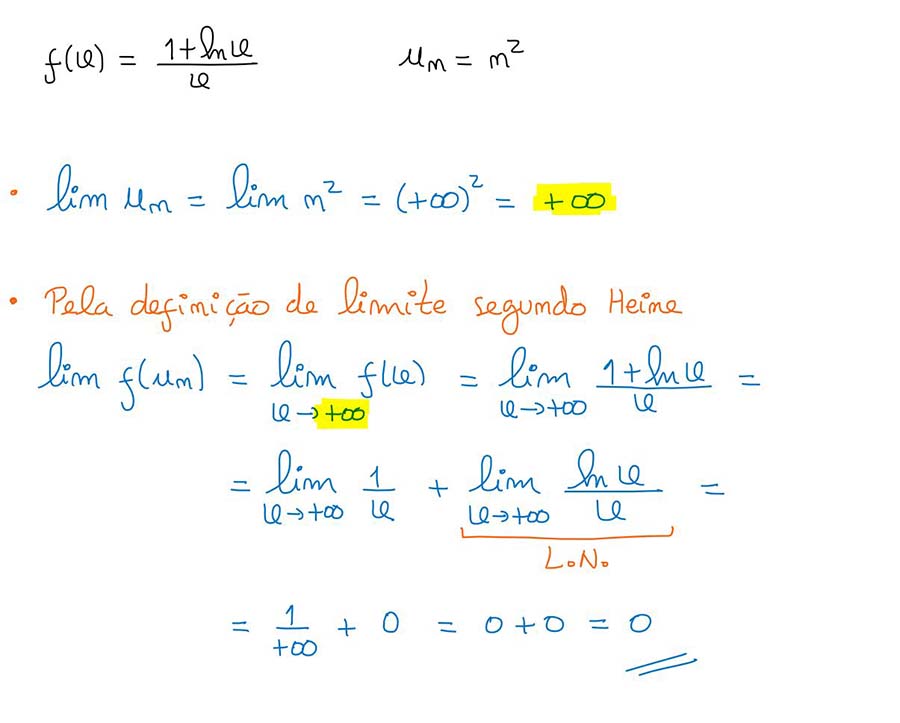 f(x) = (1+ln x)/x    uₙ = n²
• lim uₙ = lim n² = (+∞)² = +∞
• Pela definição de limite segundo Heine
lim f(uₙ) = lim_{x→+∞} f(x) = lim_{x→+∞} (1+ln x)/x =
= lim_{x→+∞} 1/x + lim_{x→+∞} (ln x)/x =
L.N.
= 1/+∞ + 0 = 0+0 = 0